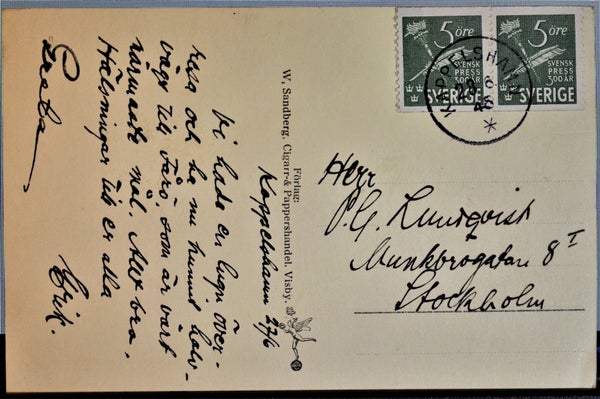 5 öre
SVENSK
PRESS
300 ÅR
SVERIGE
5 öre
SVENSK
PRESS
300 ÅR
SVERIGE
KAPPELSHAMN
Herr
P.G. Lundqvist
Munkbrogatan 8 I
Stockholm
Förlag:
W. Sandberg, Cigarr- & Pappershandel, Visby.
Kappelshamn 27/6
Vi hade en lugn över-
resa och ha nu hunnit halv-
vägs till Fårö, som är vårt
närmaste mål. Allt bra.
Hälsningar till er alla
Erik.